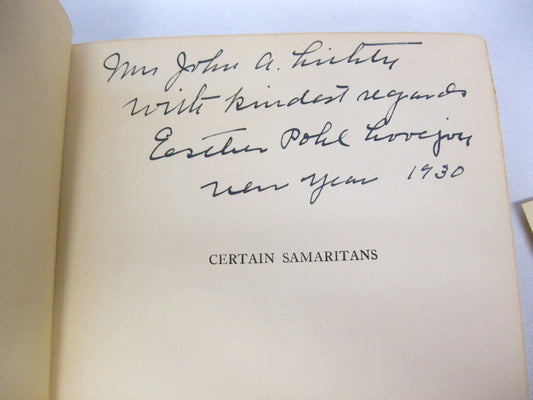 Mrs John A.
With kindest regards
Esther Pohl Lovejoy
New Year 1930
CERTAIN SAMARITANS